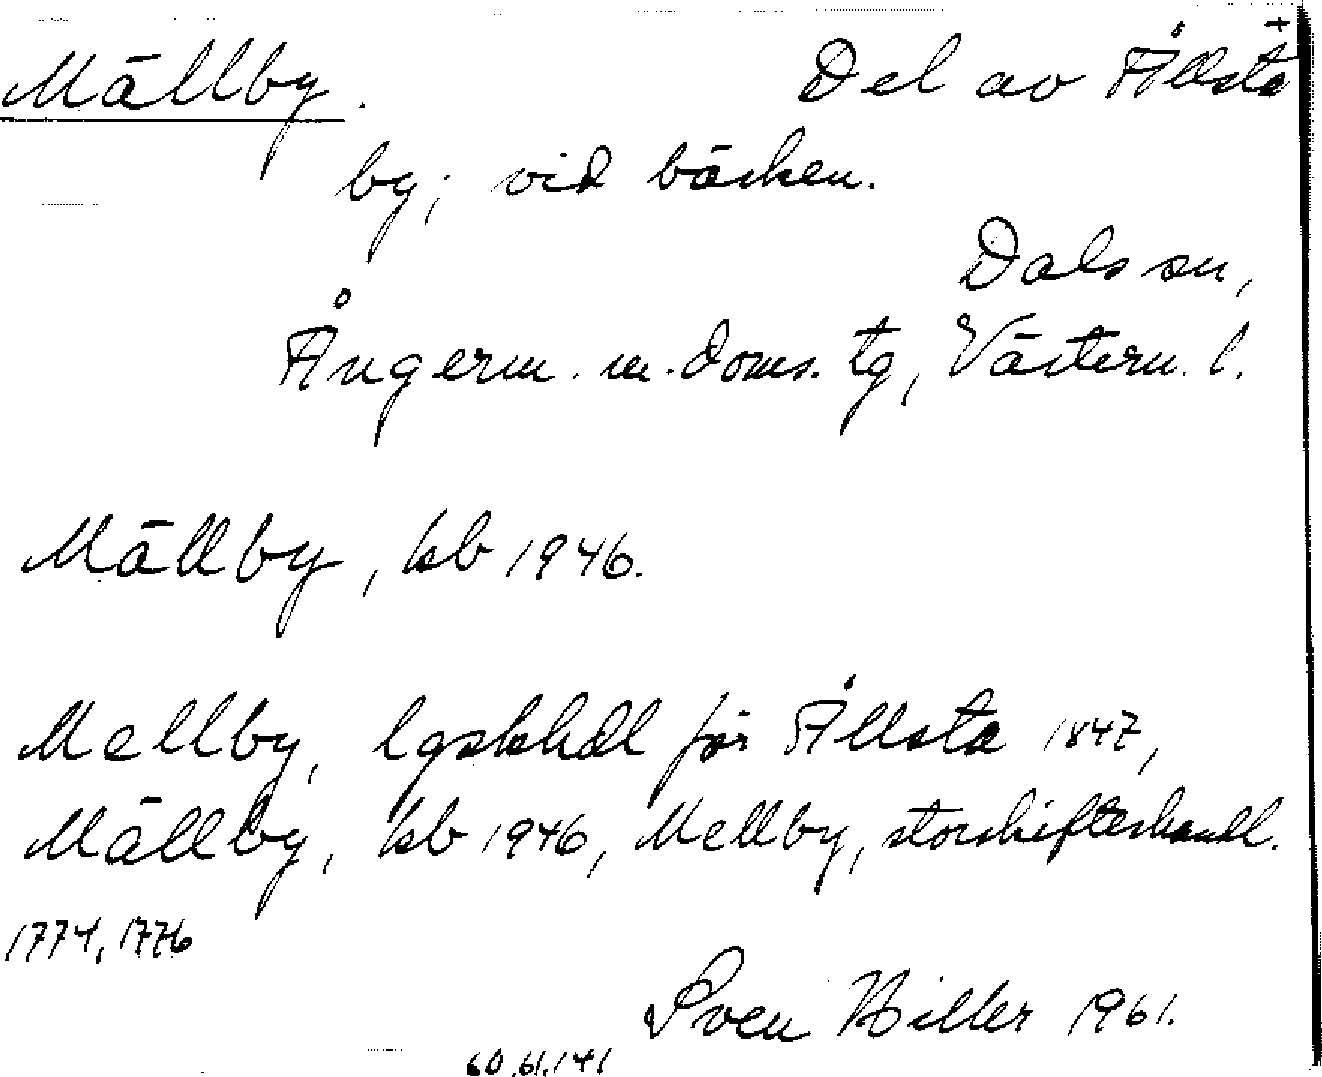 Mällby. Del av Ållsta +
by; vid bäcken.
Dals sn,
Ångerm. m. doms. tg, Västern. l.
Mällby, kb 1946.
Mellby, lgskhdl för Ållsta 1847,
Mällby, kb 1946, Mellby, storskifteshandl.
1774, 1776
Sven Hiller 1961.
60.61.141